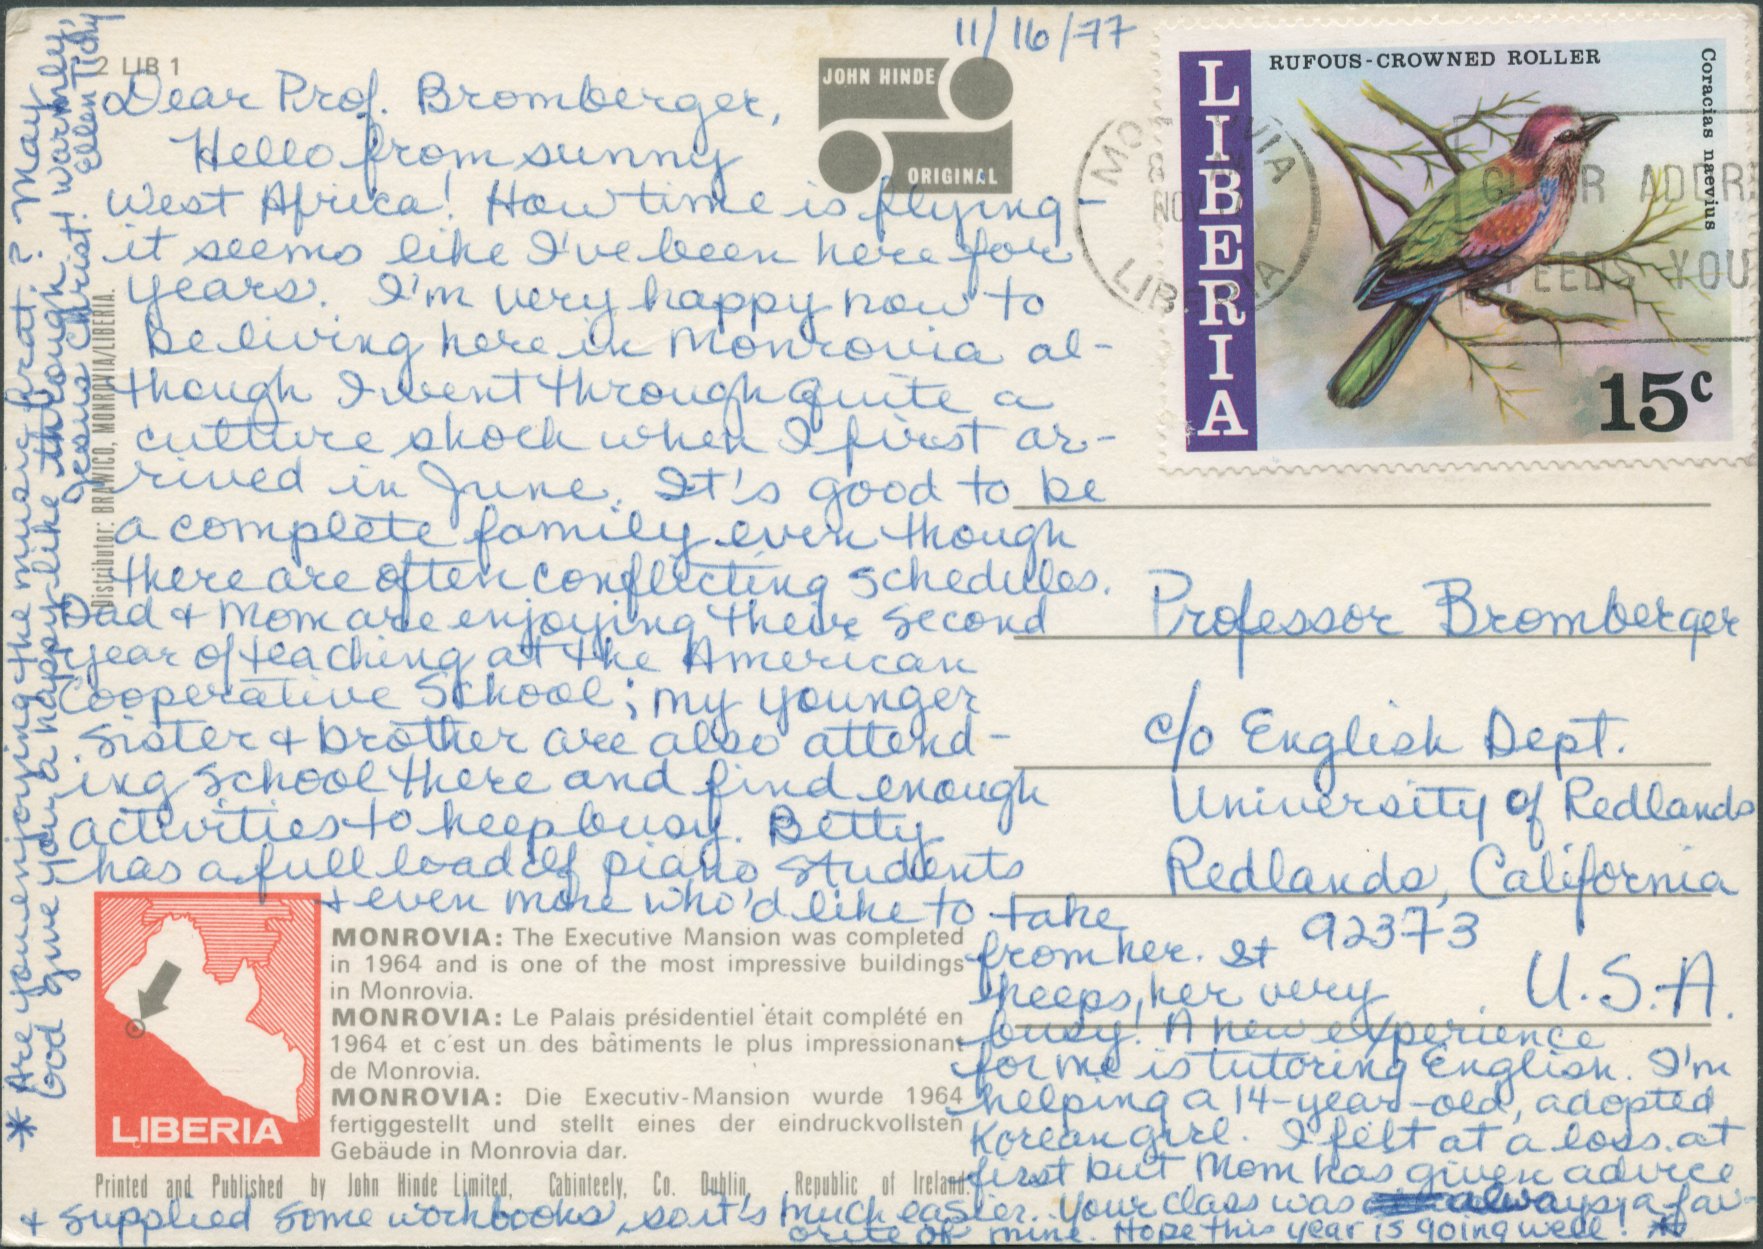 11/16/77
2 LIB 1
JOHN HINDE
ORIGINAL
Dear Prof. Bromberger,
Hello from sunny
West Africa! How time is flying -
it seems like I've been here for
years. I'm very happy now to
be living here in Monrovia al-
though I went through quite a
culture shock when I first ar-
rived in June. It's good to be
a complete family even though
there are often conflicting schedules.
Dad & Mom are enjoying their second
year of teaching at the American
Cooperative School; my younger
sister & brother are also attend-
ing school there and find enough
activities to keep busy. Betty
has a full load of piano students
& even more who'd like to take
from her. It
keeps her very
busy! A new experience
for me is tutoring English. I'm
helping a 14-year-old, adopted
Korean girl. I felt at a loss at
first but Mom has given advice
& supplied some workbooks, so it's much easier. Your class was always a fav-
orite of mine. Hope this year is going well! *
* Are you enjoying the music frat.? May
God give you a happy life through
Jesus Christ! Warmly,
Ellen Tichy
Distributor: BRAWICO, MONROVIA/LIBERIA.
LIBERIA
RUFOUS-CROWNED ROLLER
Coracias naevius
15c
MO VIA
8 AM
NOV
LIBERIA
ADDR
YOU
Professor Bromberger
c/o English Dept.
University of Redlands
Redlands, California
92373
U.S.A.
LIBERIA
MONROVIA: The Executive Mansion was completed
in 1964 and is one of the most impressive buildings
in Monrovia.
MONROVIA: Le Palais présidentiel était complété en
1964 et c'est un des bâtiments le plus impressionant
de Monrovia.
MONROVIA: Die Executiv-Mansion wurde 1964
fertiggestellt und stellt eines der eindruckvollsten
Gebäude in Monrovia dar.
Printed and Published by John Hinde Limited, Cabinteely, Co. Dublin, Republic of Ireland